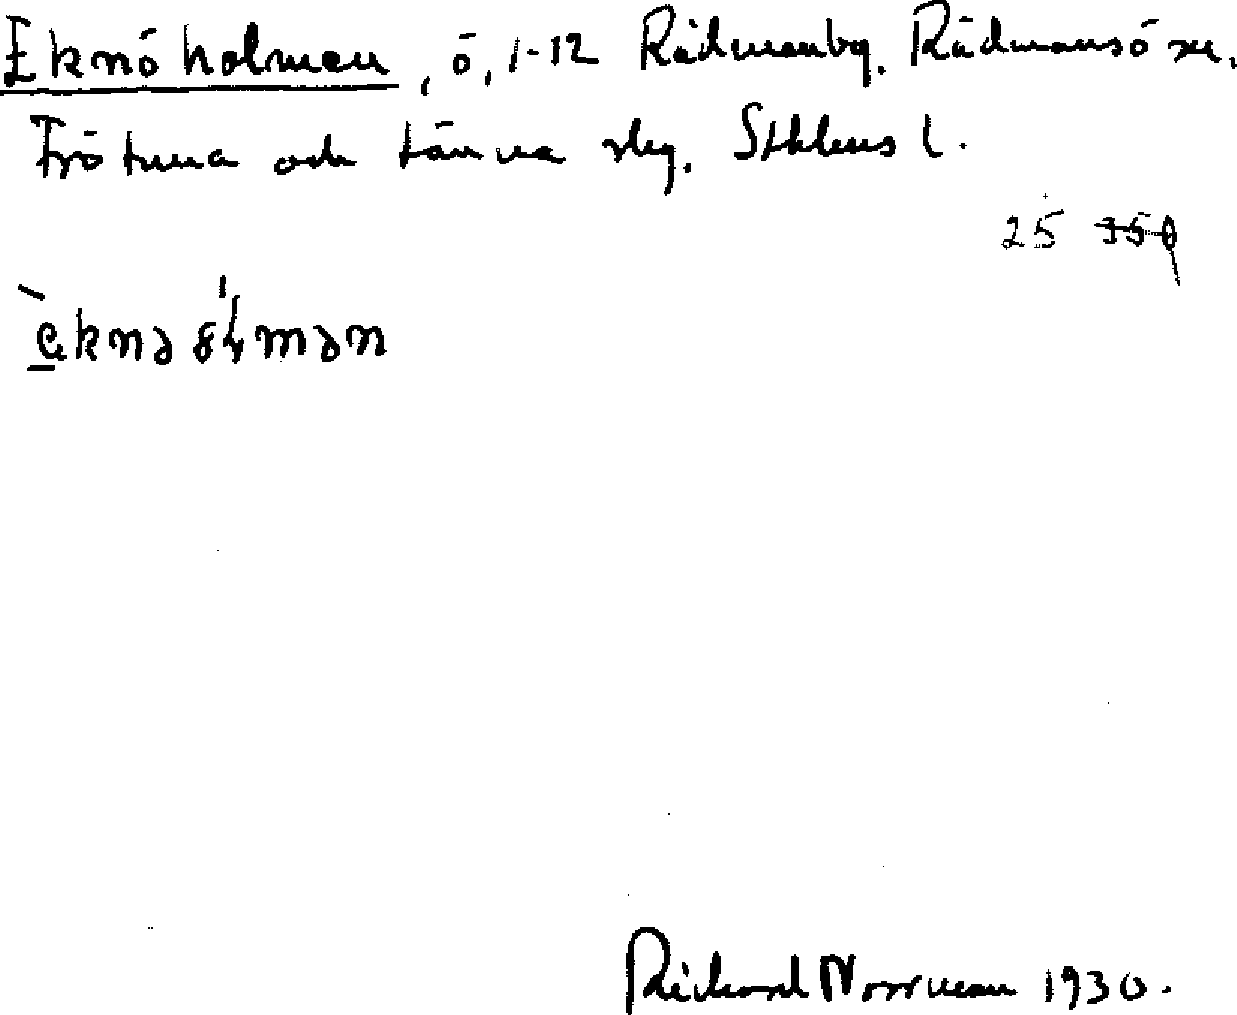 Eknöholmen, ö, 1-12 Rådmanby. Rådmansö sn.
Frötuna och Länna slg. Sthlms l.
25
 èknəålmən
Richard Norrman 1930.